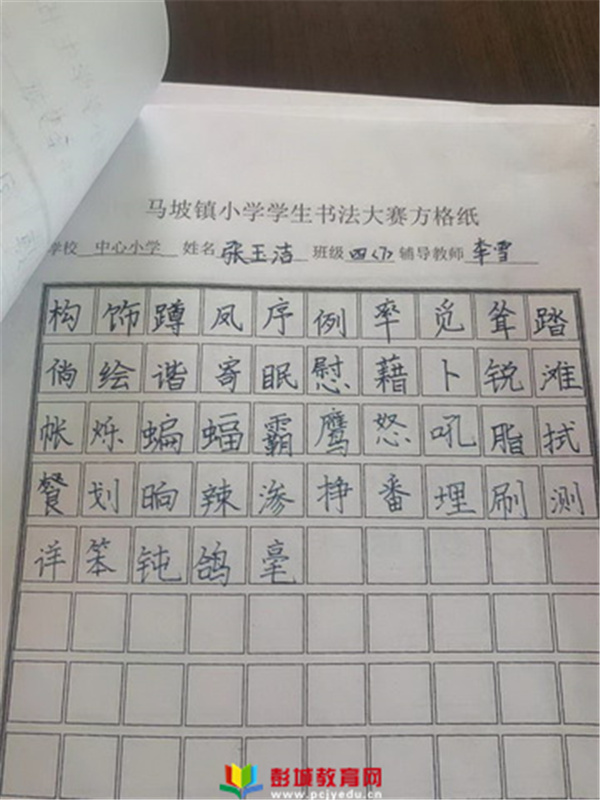 马坡镇小学学生书法大赛方格纸
学校 中心小学 姓名 张玉洁 班级 四(7) 辅导教师 李雪
构饰蹲凤序例率觅耸踏
倘绘谐寄眠慰藉卜锐滩
帐烁蝙蝠霸鹰怒吼脂拭
餐划晌辣渗挣番埋刷测
详笨钝鸽毫
彭城教育网
www.pcjyedu.cn